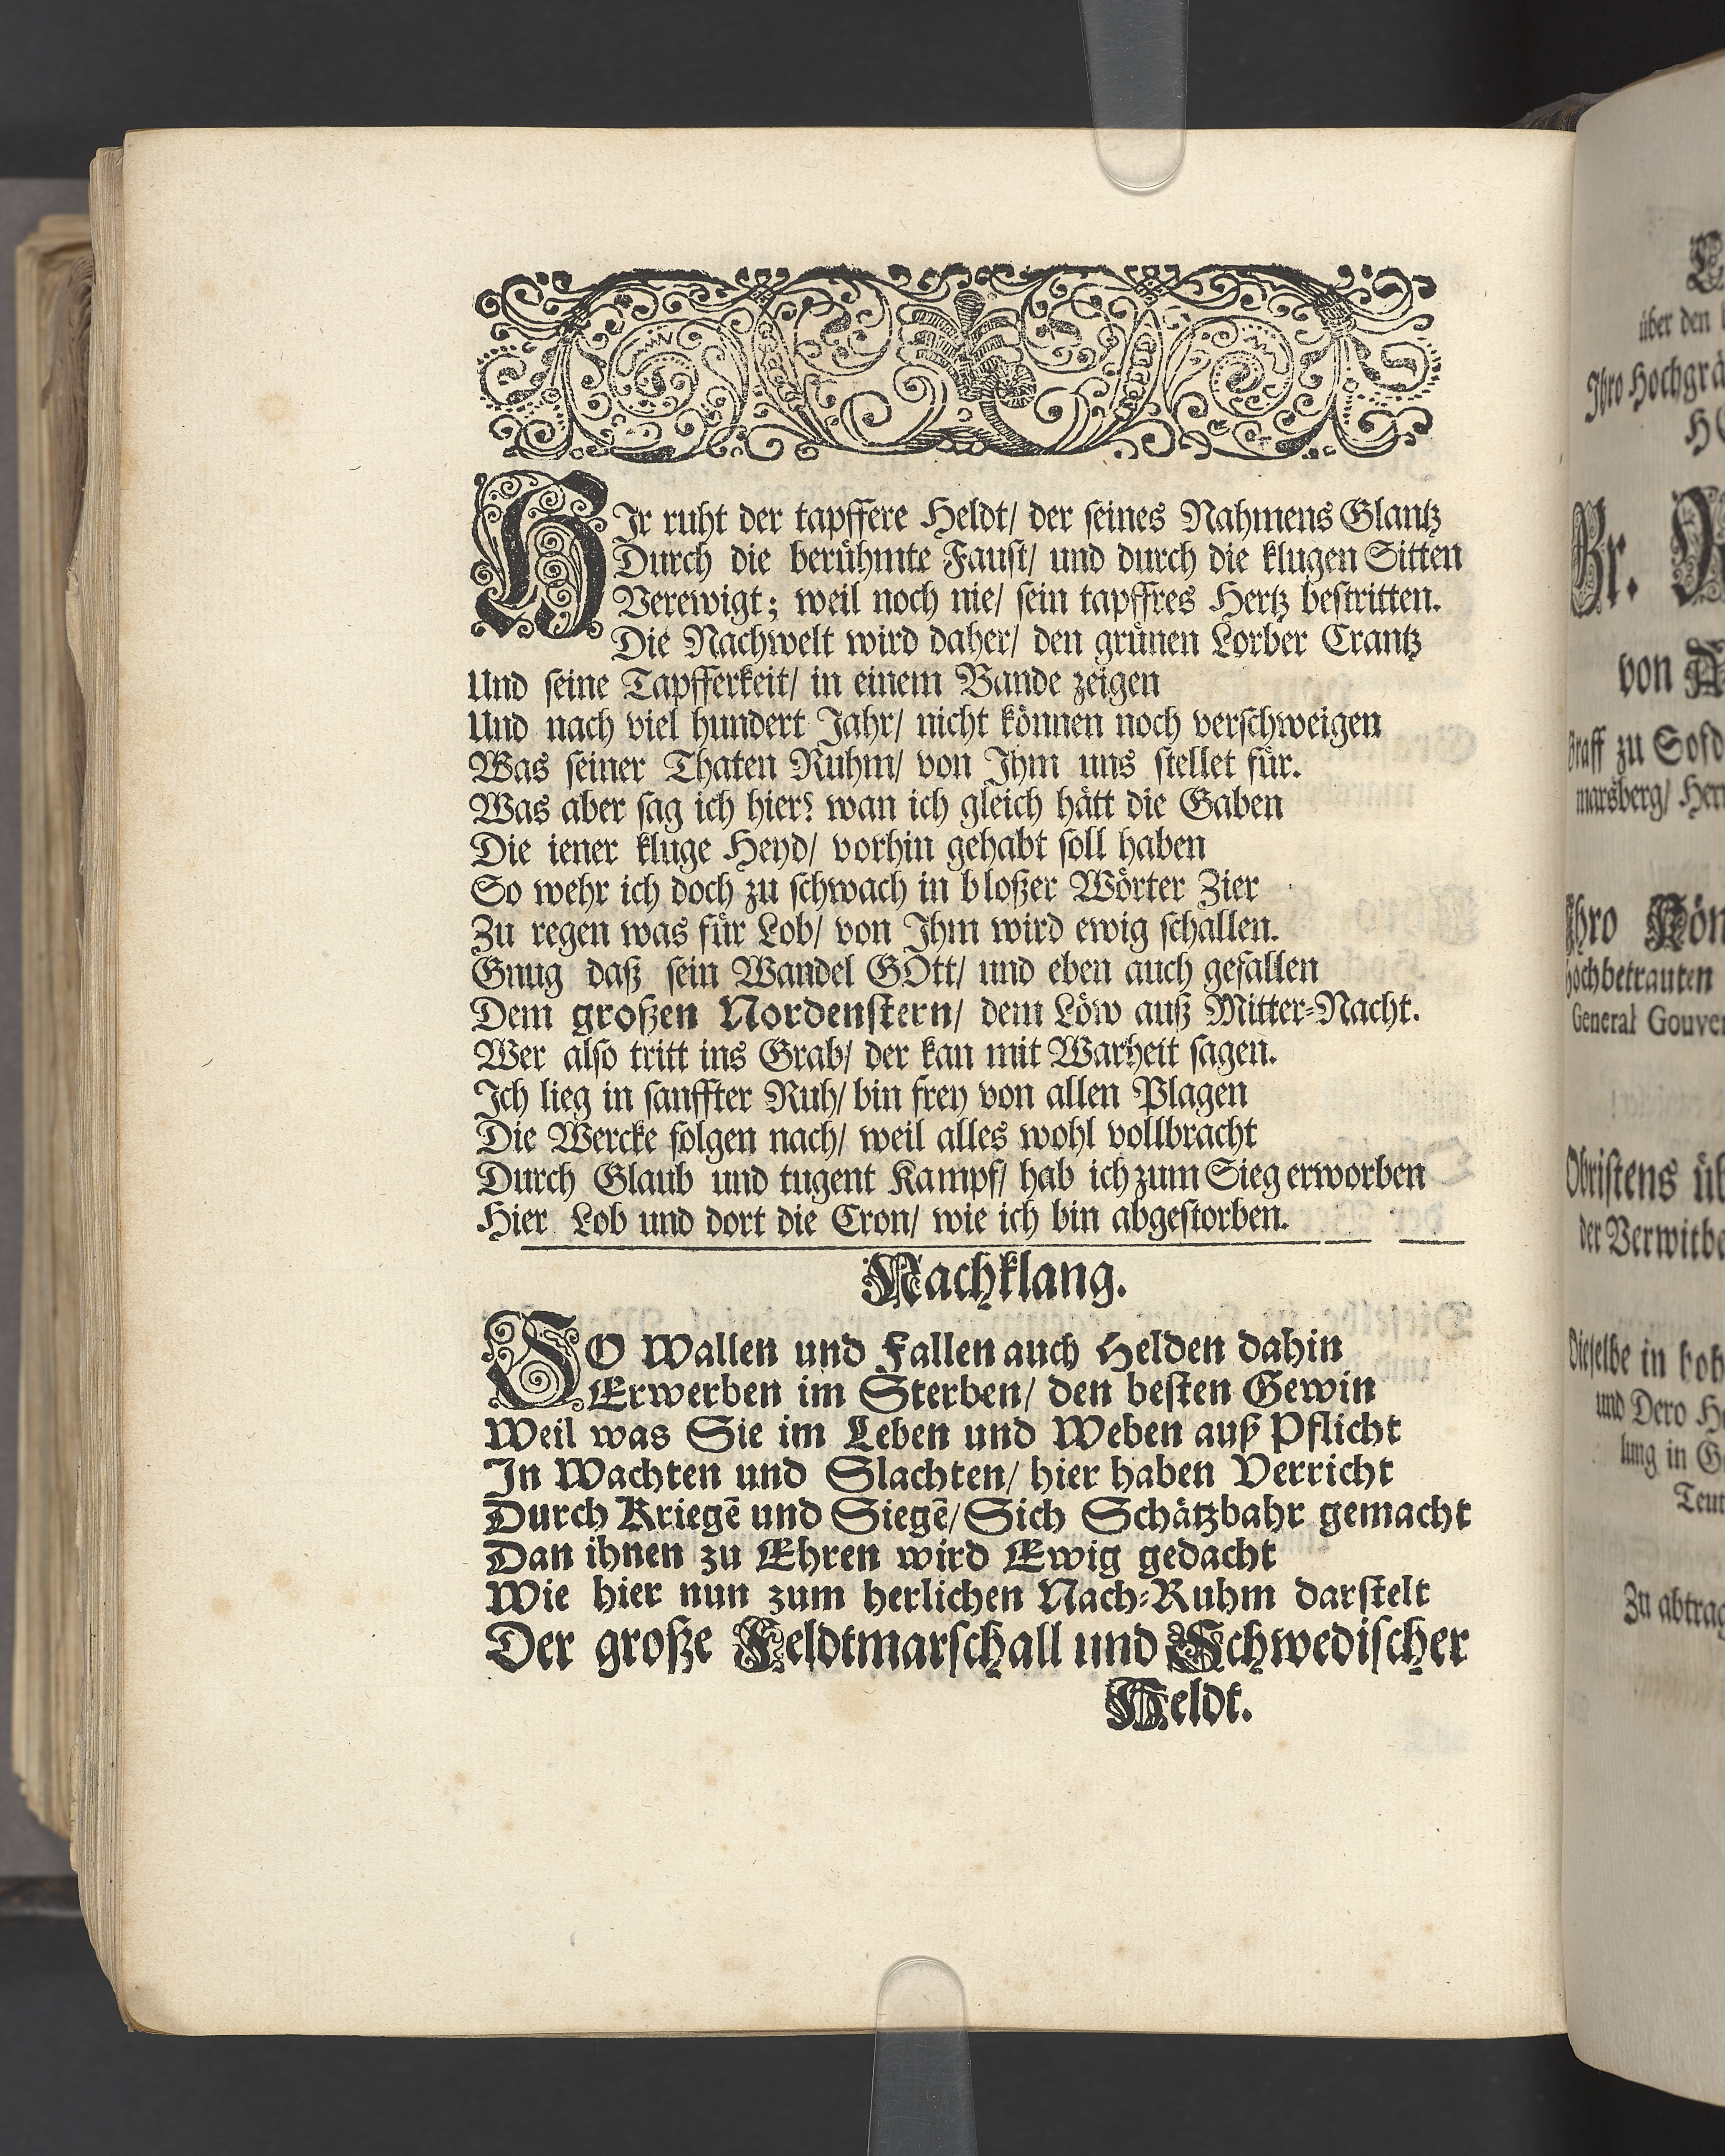 HIr ruht der tapffere Heldt/ der seines Nahmens Glantz
Durch die berühmte Faust/ und durch die klugen Sitten
Verewigt; weil noch nie/ sein tapffres Hertz bestritten.
Die Nachwelt wird daher/ den grünen Lorber Crantz
Und seine Tapfferkeit/ in einem Bande zeigen
Und nach viel hundert Jahr/ nicht können noch verschweigen
Was seiner Thaten Ruhm/ von Ihm uns stellet für.
Was aber sag ich hier? wan ich gleich hätt die Gaben
Die iener kluge Heyd/ vorhin gehabt soll haben
So wehr ich doch zu schwach in bloßer Wörter Zier
Zu regen was für Lob/ von Ihm wird ewig schallen.
Gnug daß sein Wandel GOtt/ und eben auch gefallen
Dem großen Nordenstern/ dem Löw auß Mitter-Nacht.
Wer also tritt ins Grab/ der kan mit Warheit sagen.
Ich lieg in sanffter Ruh/ bin frey von allen Plagen
Die Wercke folgen nach/ weil alles wohl vollbracht
Durch Glaub und tugent Kampf/ hab ich zum Sieg erworben
Hier Lob und dort die Cron/ wie ich bin abgestorben.
Nachklang.
SO Wallen und Fallen auch Helden dahin
Erwerben im Sterben/ den besten Gewin
Weil was Sie im Leben und Weben auß Pflicht
In Wachten und Slachten/ hier haben Verricht
Durch Kriegẽ und Siegẽ/ Sich Schätzbahr gemacht
Dan ihnen zu Ehren wird Ewig gedacht
Wie hier nun zum herlichen Nach-Ruhm darstelt
Der große Feldtmarschall und Schwedischer
Heldt.
über den
Ihro Hochgrä
Gr.
von
Graff zu
marsberg/
Ihro Kön
Hochbetrauten
General Gouver
Obristens üb
der Verwitbe
Dieselbe in hoh
und Dero
lung in
Zu abtrag